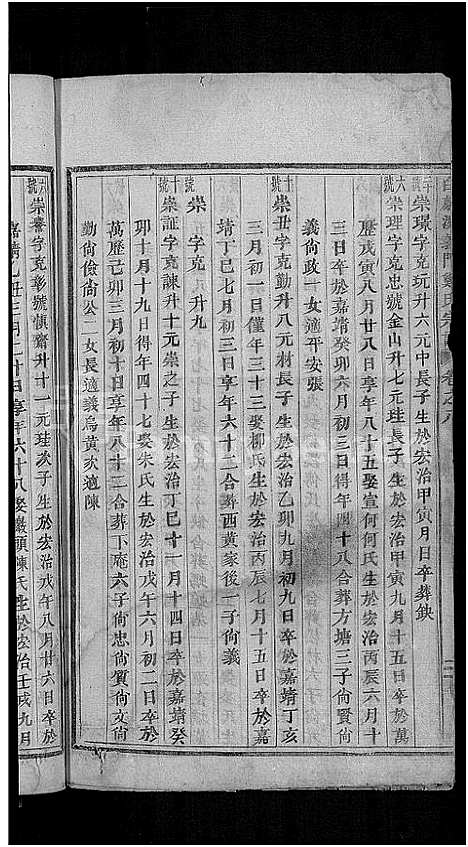 崇璟字克玩升六元中長子生於宏治甲寅月日卒葬鈌
六號崇理字克忠號金山升七元珪長子生於宏治甲寅九月十五日卒於萬
歷戊寅八月廿八日享年八十五娶宣何何氏生於宏治丙辰六月十
三日卒於嘉靖癸卯三月初三日得年四十八合葬方塘三子尙賢尙
義尙政一女適平安張
十號崇丑字克勤升八元材長子生於宏治乙卯九月初九日卒於嘉靖丁亥
三月初一日僅年三十三娶柳氏生於宏治丙辰七月十五日卒於嘉
靖丁巳七月初三日享年六十二合葬西黃家後一子尙義
號崇 字克 升九
十號崇証字克諫升十元崇之子生於宏治丁巳十一月十四日卒於嘉靖癸
卯十月十九日得年四十七娶朱氏生於宏治戊午六月初二日卒於
萬歷己卯三月初十日享年八十二合葬下庵六子尙忠尙質尙文尙
勤尙儉尙公二女長適義烏黃次適陳
號崇 字克彰號慎齋升十一元珪次子生於宏治戊午八月廿六日卒於
嘉靖乙丑三月二十四日享年六十八娶 頭陳氏生於宏治壬戌九月